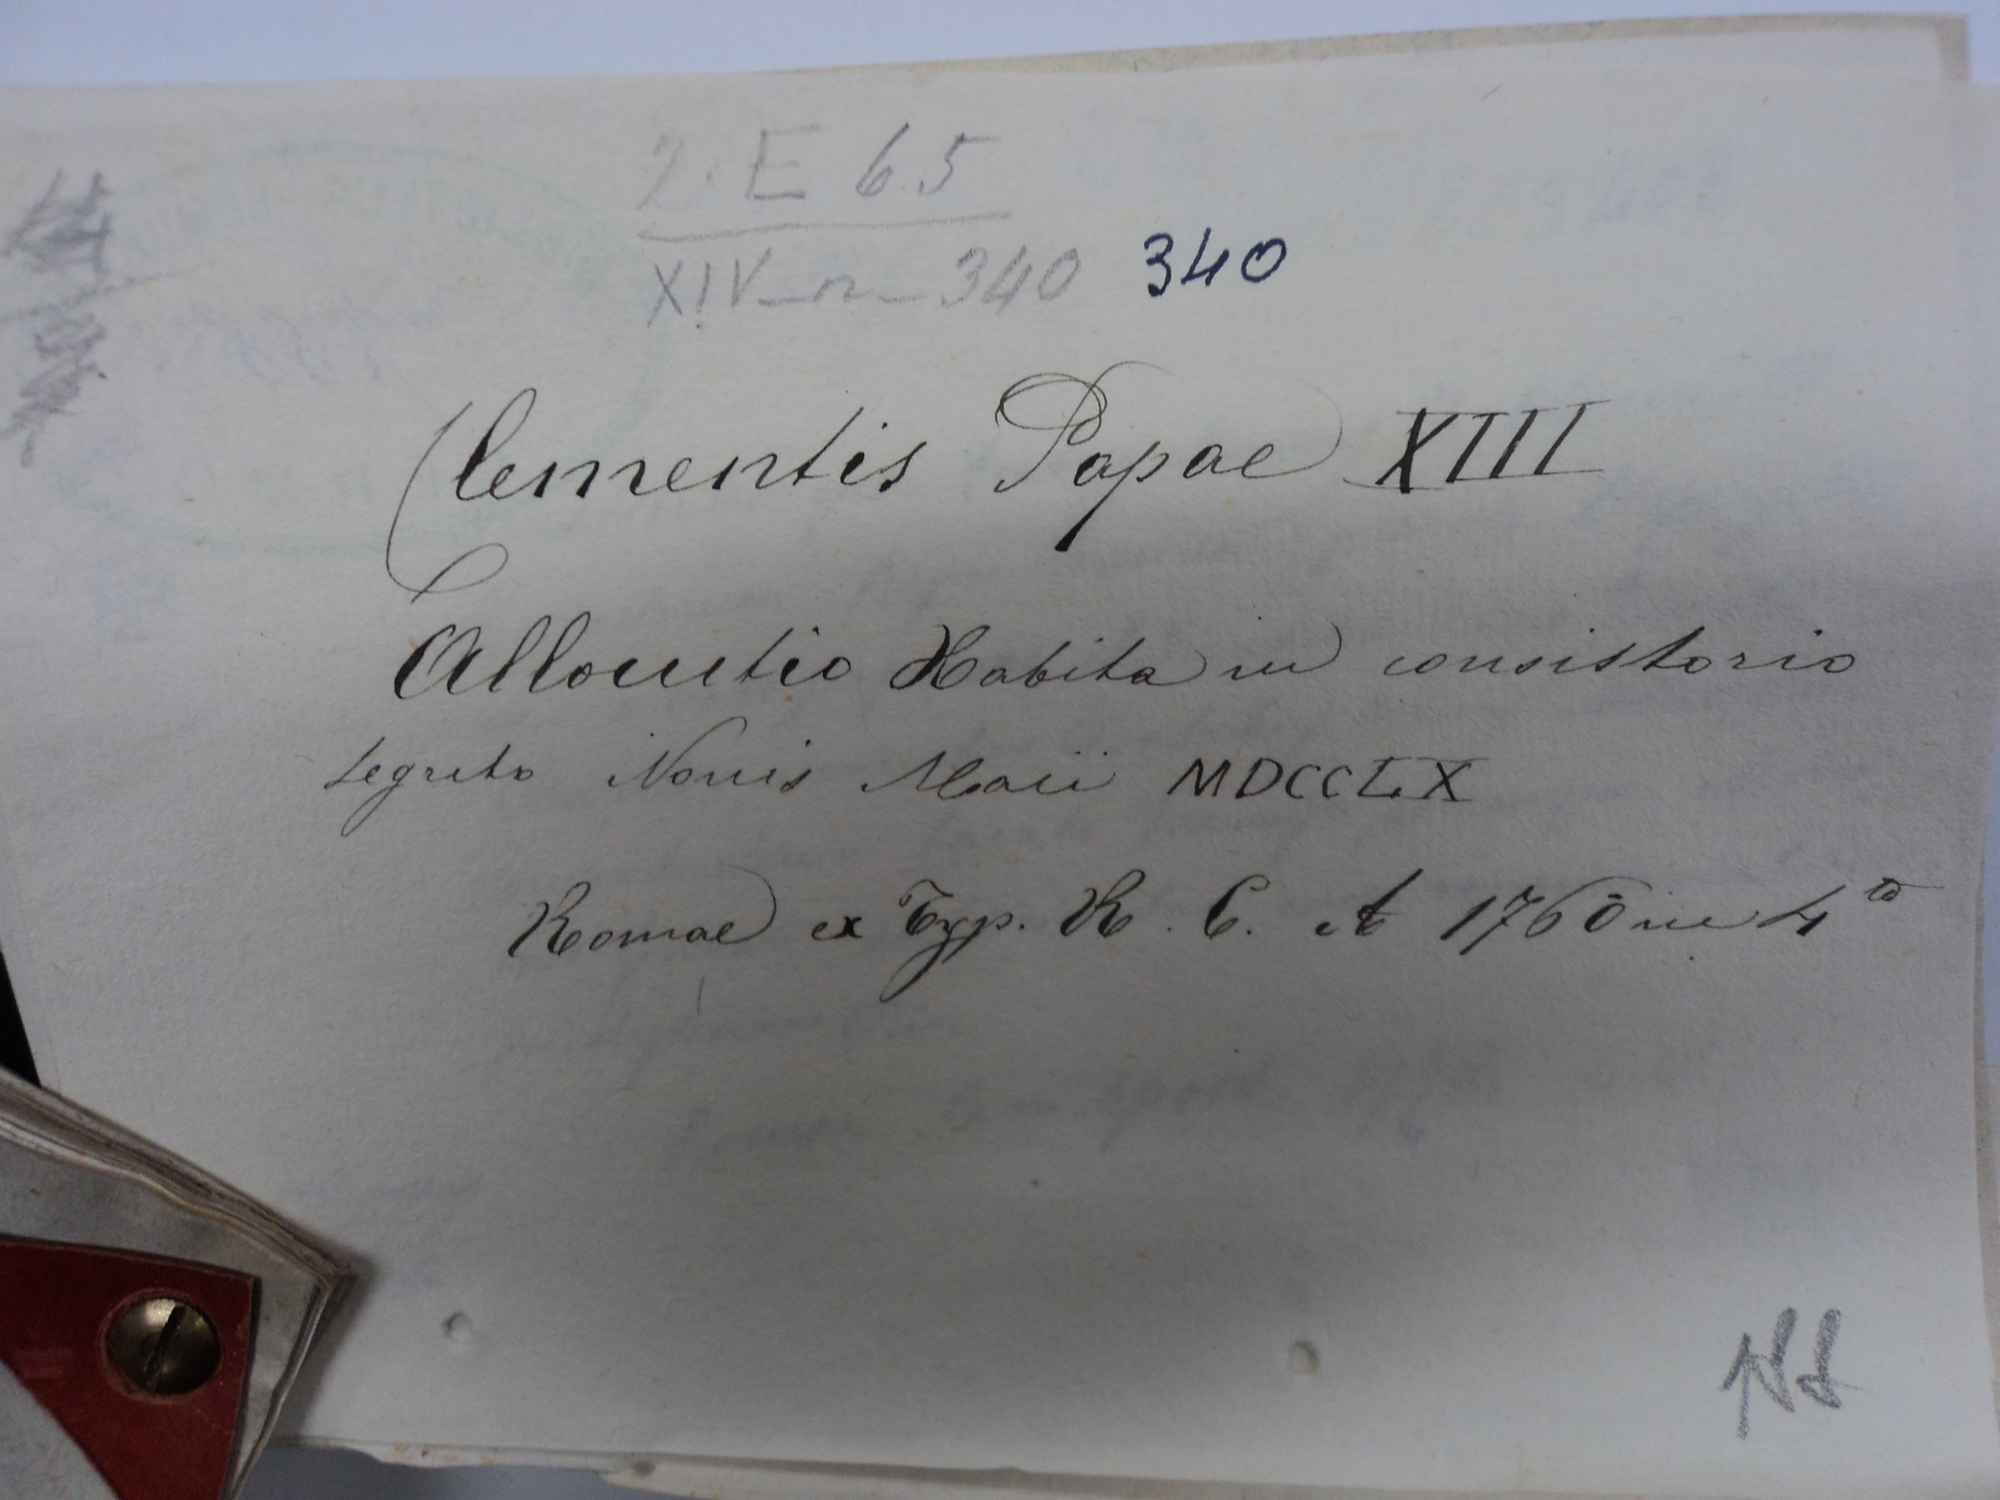 2. E 6.5
XIV n 340 340
Clementis Papae XIII
Allocutio Habita in consistorio
segreto Nonis Maii MDCCLX
Romae ex Typ. R. C. A 1760 in 4to